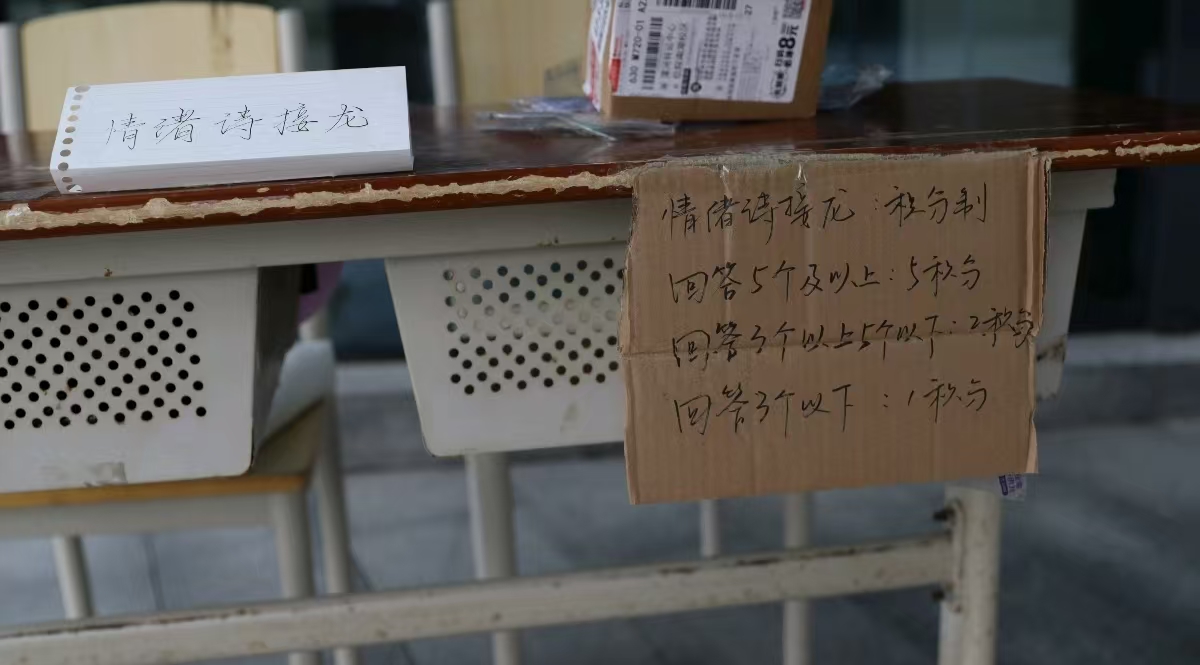 情绪诗接龙
情绪诗接龙：积分制
回答5个及以上：5积分
回答3个以上5个以下：2积分
回答3个以下：1积分
630 M720-01 A2
27
8元